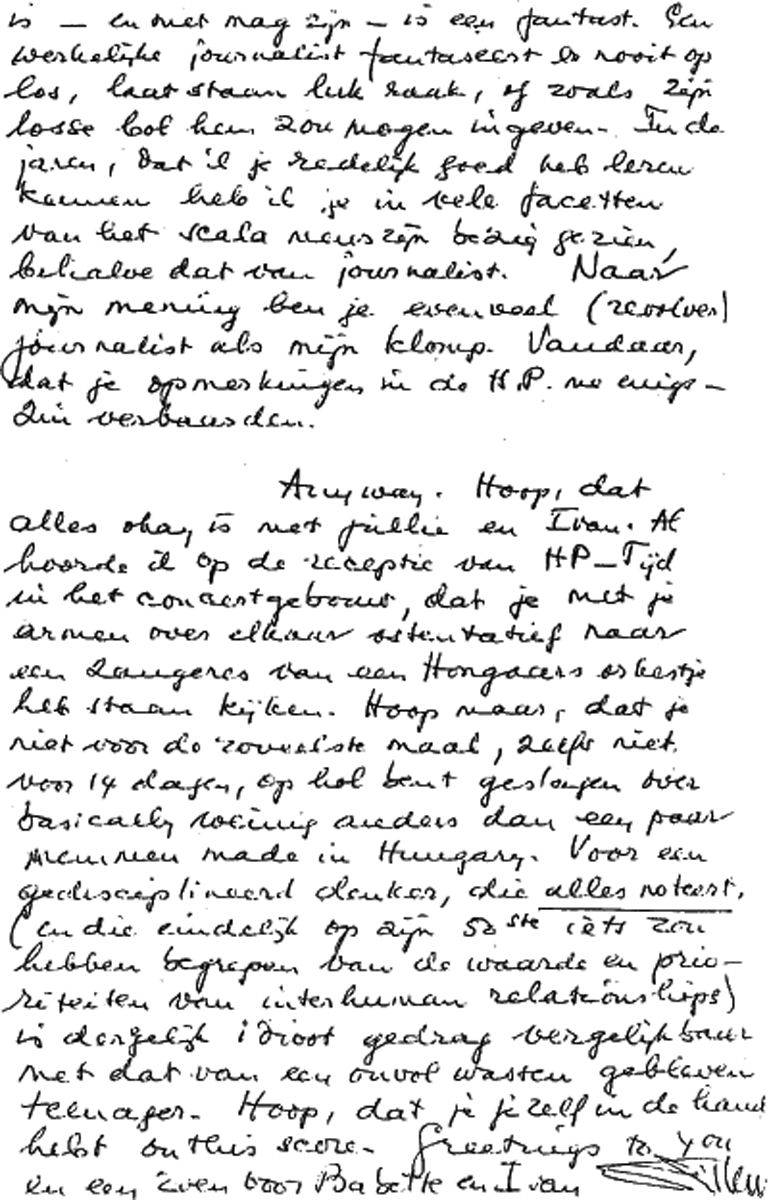 is — en niet mag zijn — is een fantast. Een
werkelijke journalist fantaseert er nooit op
los, laat staan luk raak, of zoals zijn
losse bol hem zou mogen ingeven. In de
jaren, dat ik je redelijk goed heb leren
kennen heb ik je in vele facetten
van het scala mens zijn bezig gezien,
behalve dat van journalist. Naar
mijn mening ben je evenveel (revolver)
journalist als mijn klomp. Vandaar,
dat je opmerkingen in de H.P. me enigs-
zin verbaasden.
Anyway. Hoop, dat
alles okay is met jullie en Ivan. Al
hoorde ik op de receptie van HP—Tijd
in het concertgebouw, dat je met je
armen over elkaar ostentatief naar
een zangeres van een Hongaars orkestje
heb staan kijken. Hoop maar, dat je
niet voor de zoveelste maal, zelfs niet
voor 14 dagen, op hol bent geslagen over
basically weinig anders dan een paar
made in Hungary. Voor een
gedisciplineerd denker, die alles noteert,
(en die eindelijk op zijn 50ste iets zou
hebben begrepen van de waarde en prio-
riteiten van interhuman relationships)
is dergelijk idioot gedrag vergelijkbaar
met dat van een onvolwassen gebleven
teenager. Hoop, dat je jezelf in de hand
hebt on this score. Greetings to you
en een zoen voor Babette en Ivan